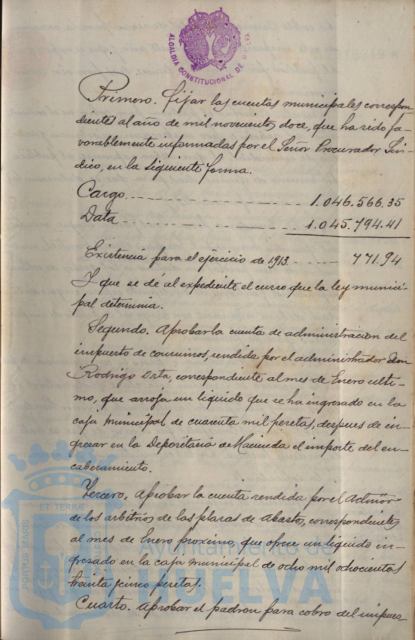 ALCALDIA CONSTITUCIONAL DE
Primero. Fijar las cuentas municipales correspon-
dientes al año de mil novecientos doce, que ha sido fa-
vorablemente informadas por el Señor Procurador Sín-
dico, en la siguiente forma.
Cargo 1.046.566,35
Data 1.045.794.41
Existencia para el ejercicio de 1913 771,94
I que se dé al expediente el curso que la ley munici-
pal determina.
Segundo. Aprobar la cuenta de administracion del
impuesto de consumos, rendida por el administrador Don
Rodrigo Orta, correspondiente al mes de Enero ulti-
mo, que arroja un liquido que se ha ingresado en la
caja municipal de cuarenta mil pesetas, despues de in-
gresar en la Depositaría de Hacienda el importe del en-
cabezamiento.
Tercero, Aprobar la cuenta rendida por el Admor
de los arbitrios de las plazas de Abasto, correspondiente
al mes de Enero proximo, que ofrece un liquido in-
gresado en la caja municipal de ocho mil ochocientas
treinta y cinco pesetas.
Cuarto. Aprobar el padron para cobro del impues
Ayuntamiento de
HUELVA